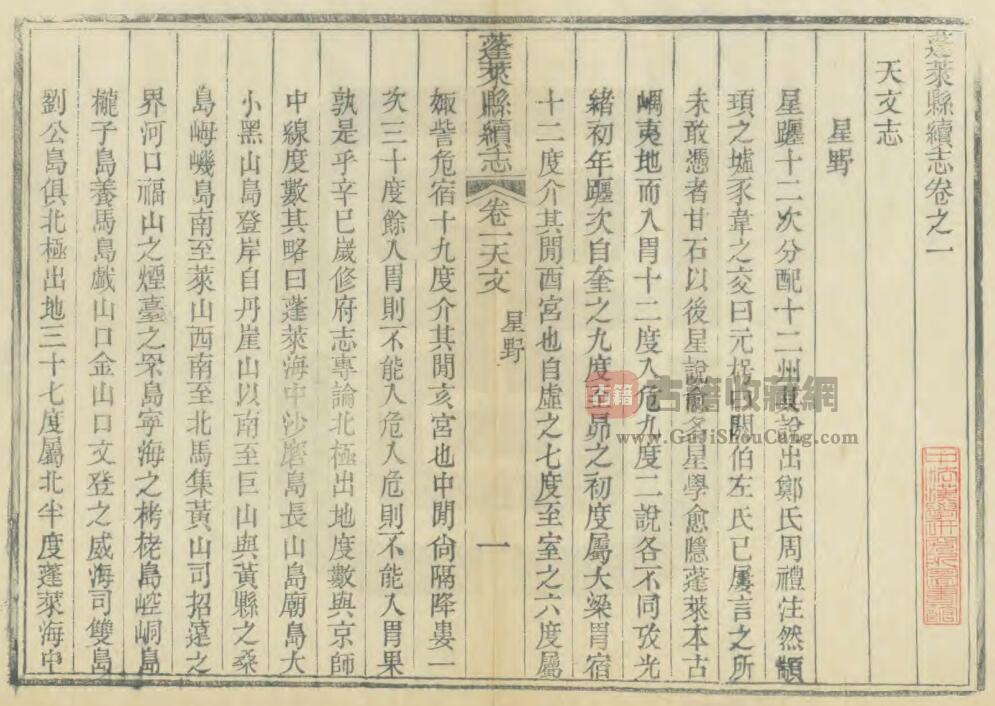 蓬萊縣續志卷之一
天文志
星野
星躔十二次分配十二州其說出鄭氏周禮注然顓
頊之墟豕韋之交曰元枵曰閼伯左氏已屢言之所
未敢憑者甘石以後星說愈名星學愈隱蓬萊本古
嵎夷地而入胃十二度入危九度二說各不同攷光
緒初年躔次自奎之九度至昴之初度屬大梁胃宿
十二度介其間酉宮也自虛之七度至室之六度屬
蓬萊縣續志
卷一天文
星野
一
娵訾危宿十九度介其間亥宮也中間尙隔降婁一
次三十度餘入胃則不能入危入危則不能入胃果
孰是乎辛巳歲修府志專論北極出地度數與京師
中線度數其略曰蓬萊海中沙磨島長山島廟島大
小黑山島登岸自丹崖山以南至巨山與黃縣之桑
島㟂嵝島南至萊山西南至北馬集黃山司招遠之
界河口福山之煙臺之罘島寧海之栲栳島崆峒島
櫳子島養馬島戲山口金山口文登之威海司雙島
劉公島俱北極出地三十七度屬北半度蓬萊海中
古籍
古籍收藏網
www.GuJiShouCang.com